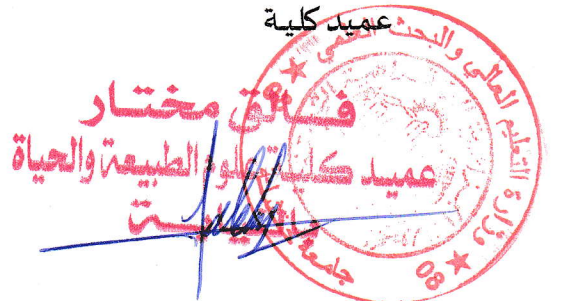 عميد كلية
فالق مختار
عميد كلية علوم الطبيعة والحياة
بالنيابة
وزارة التعليم العالي والبحث العلمي
جامعة
08